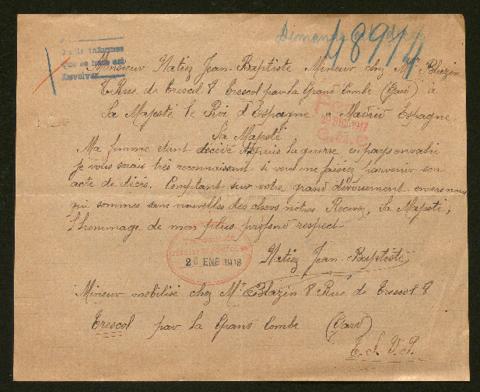 Demande
48914
Monsieur Hatiez Jean-Baptiste Mineur chez Mr Blazin
Rue de Trescol 8 Trescol par La Grand Combe (Gard) à
Sa Majesté le Roi d'Espagne à Madrid Espagne
Sa Majesté
Ma femme étant décédé depuis la guerre en pays envahi
je vous serais très reconnaissant si vous me faisiez parvenir son
acte de décès. Comptant sur votre grand dévouement envers nous
qui sommes sans nouvelles des chers nôtres. Recevez, Sa Majesté,
l'hommage de mon plus profond respect
Hatiez Jean-Baptiste
26 ENE 1918
Mineur mobilisé chez Mr Blazin 8 Rue de Trescol 8
Trescol par La Grand Combe (Gard)
T. S. V. P.